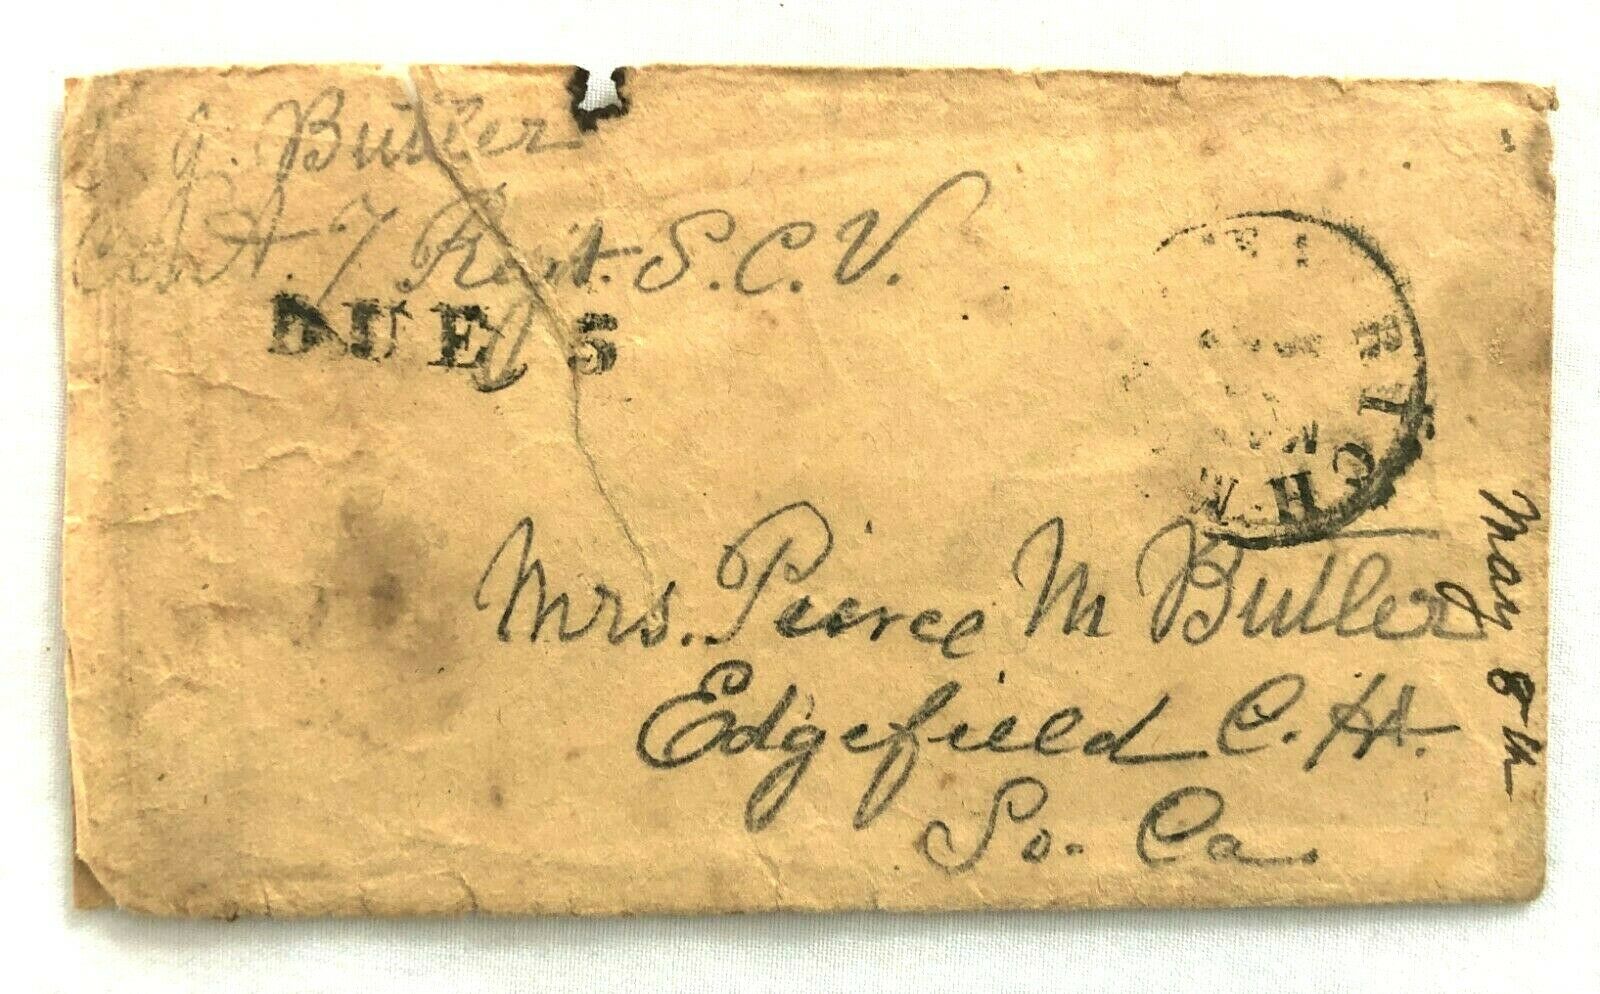 J. Butler
7 Regt. S. C. V.
DUE 5
RICH
Mrs. Pierce M Butler
Edgefield C. H.
So. Ca.
May 8th